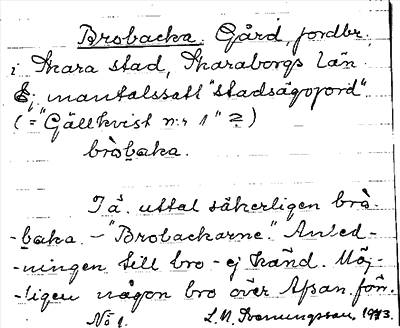 Brobacka. Gård, jordbr.
i Skara stad, Skaraborgs län.
Ej mantalssatt "stadsägojord"
(="Gällkvist n:r 1" 2)
bròbaka.
Tå. uttal säkerligen brò-
-baka. - "Brobackarne". Anled-
-ningen till bro - ej känd. Möj-
-ligen någon bro över Afsan förr.
No 1. L.N. 1943.